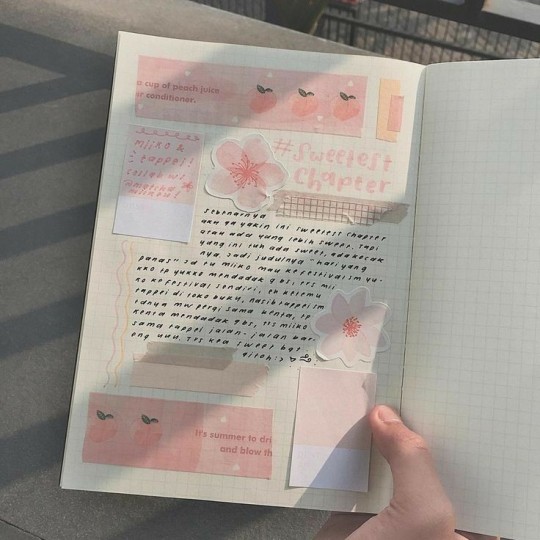 a cup of peach juice
or conditioner.
Miiko &
tappei!
collab ws
#Sweetest
Chapter
sebenarnya
aku ga yakin ini sweetest chapter
atau ada yang lebih sweet. tapi
yang ini tuh ada sweet, ada kocak
nya. jadi judulnya "hari yang
panas" jd tu miiko mau ke festival sm yu-
kko tp yukko mendadak gbs, trs mii
ko ke festival sendiri, eh ketemu
tappei di toko buku, nasib tappei sm
adnya mw pergi sama kenta, tp
kenta mendadak gbs, trs miiko
sama tappei jalan-jalan bar-
eng uuu. trs kea sweet bgt
gitoh:>
It's summer to dri
and blow th